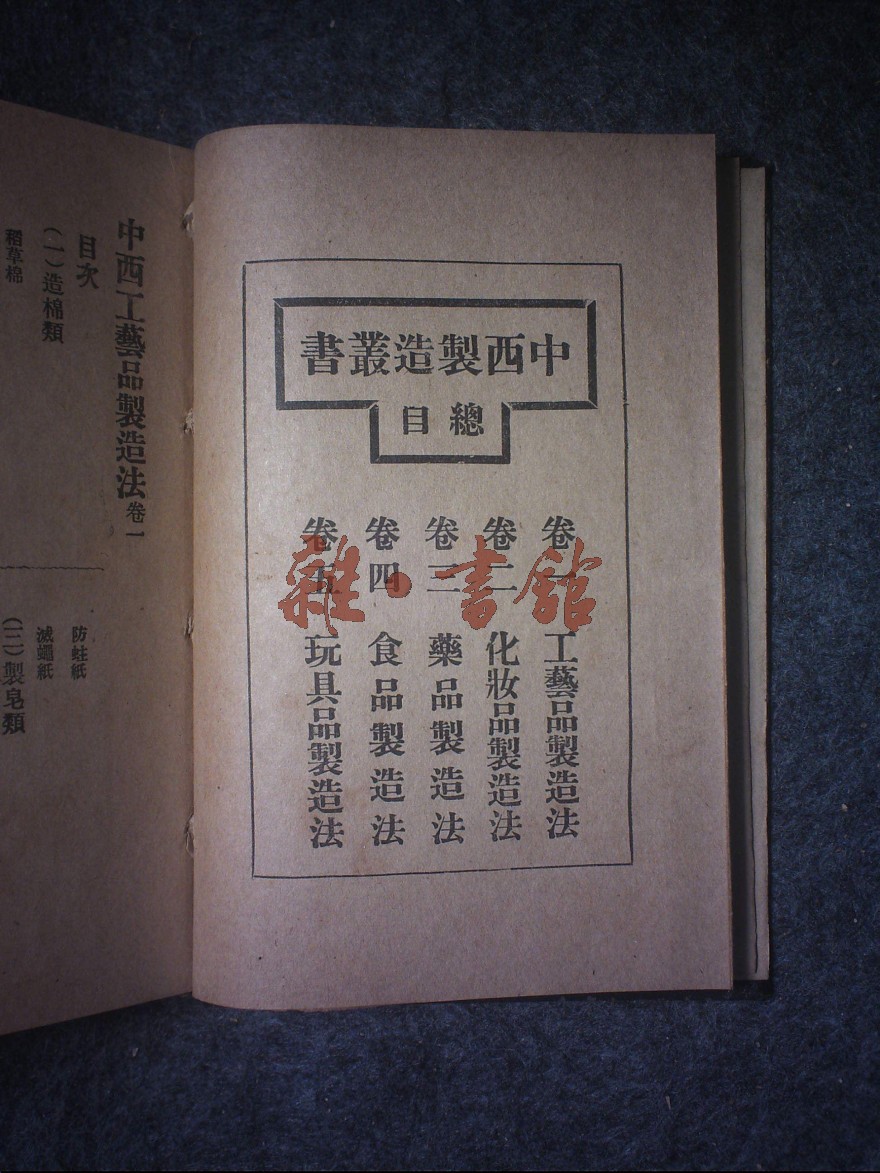 中西製造叢書
總目
卷一 工藝品製造法
卷二 化妝品製造法
卷三 藥品製造法
卷四 食品製造法
卷五 玩具品製造法
雜·書館
中西工藝品製造法卷一
目次
(一)造棉類
稻草棉
防蛀紙
滅蠅紙
(三)製皂類